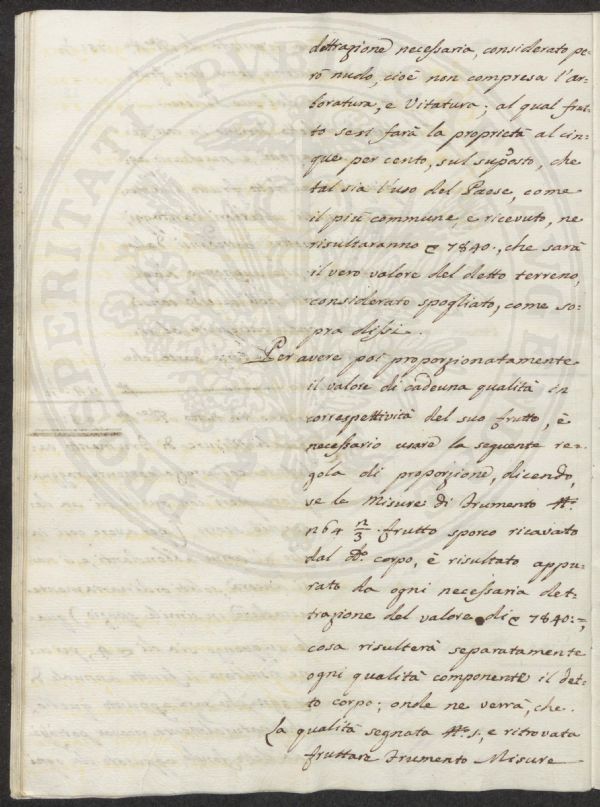 dettrazione necessaria, considerato pe„
rò nudo, cioè non compresa l'ar„
boratura, e Vitatura; al qual frut„
to se si farà la proprietà al cin„
que per cento, sul suposto, che
tal sia l'uso del Paese, come
il più commune, e ricevuto, ne
risultaranno 7840., che sarà
il vero valore del detto terreno,
considerato spogliato, come so„
pra dissi.
Per avere poi proporzionatamente
il valore di cadeuna qualità in
correspettività del suo frutto, è
necessario usare la seguente re„
gola di proporzione, dicendo,
se le Misure di Frumento
n 64 frutto sporco ricavato
dal do. corpo, è risultato appu„
rato da ogni necessaria det„
trazione del valore di 7840:=,
cosa risulterà separatamente
ogni qualità componente il det„
to corpo; onde ne verrà, che.
La qualità segnata No. 1, e ritrovata
fruttare Frumento Misure
PROSPERITATI PVBLICAE